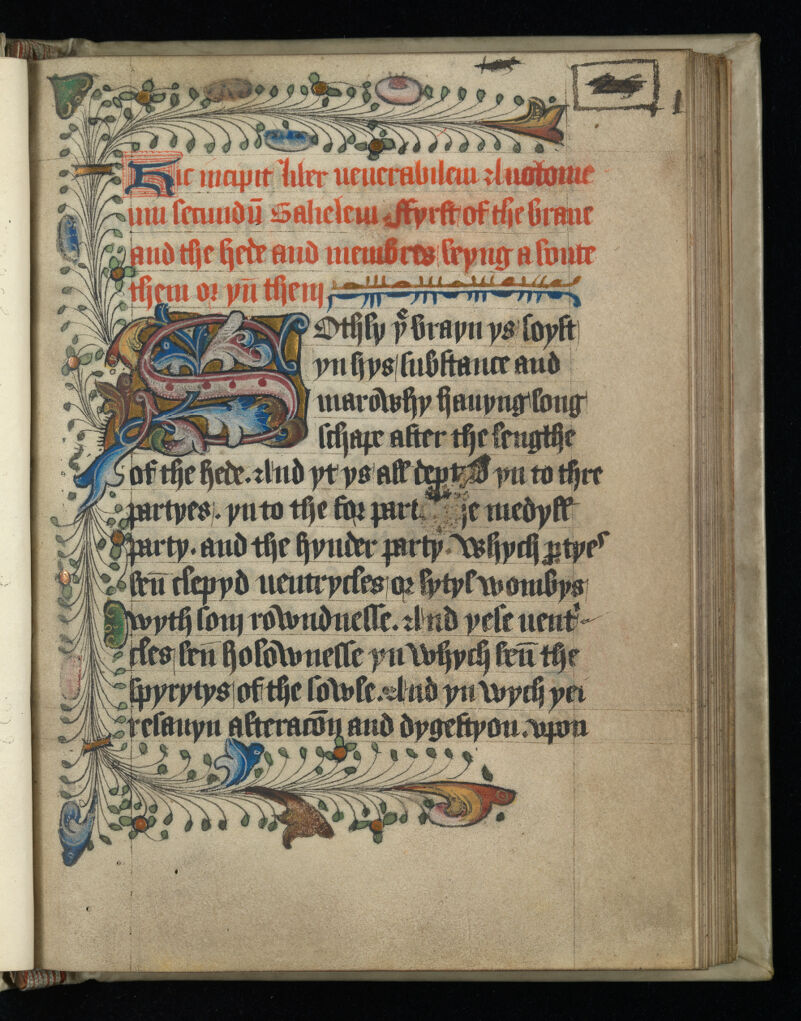 Hic incipit liber venerabilem Anotome
nu secundū Galielem ffyrst of the brane
and the hede and membres beyng a boute
them or yn̄ them
SOthly yͤ brayn ys soyft
yn hys substance and
marowhy hauyng long
schape after the lengthe
of the hede. And yt ys all dept yn to thre
partyes. yn to the for part e medyll
party. and the hynder party. Whych ꝑtyes
ben̄ clepyd ventrycles or lytyl wombys
wyth som rowndnesse. And yese ventͬ-
cles ben holownesse yn whych ben̄ the
spyrytys of the sowle. And yn wych yei
resauyn alteracōn and dygestyon. vpon
1